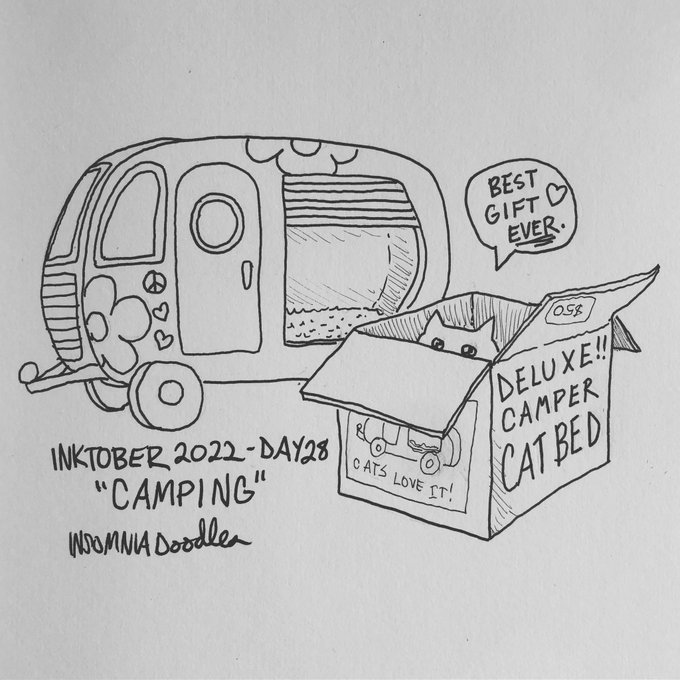 BEST
GIFT ♡
EVER.
$50
DELUXE!!
CAMPER
CAT BED
CATS LOVE IT!
INKTOBER 2022 - DAY 28
"CAMPING"
INSOMNIA Doodles